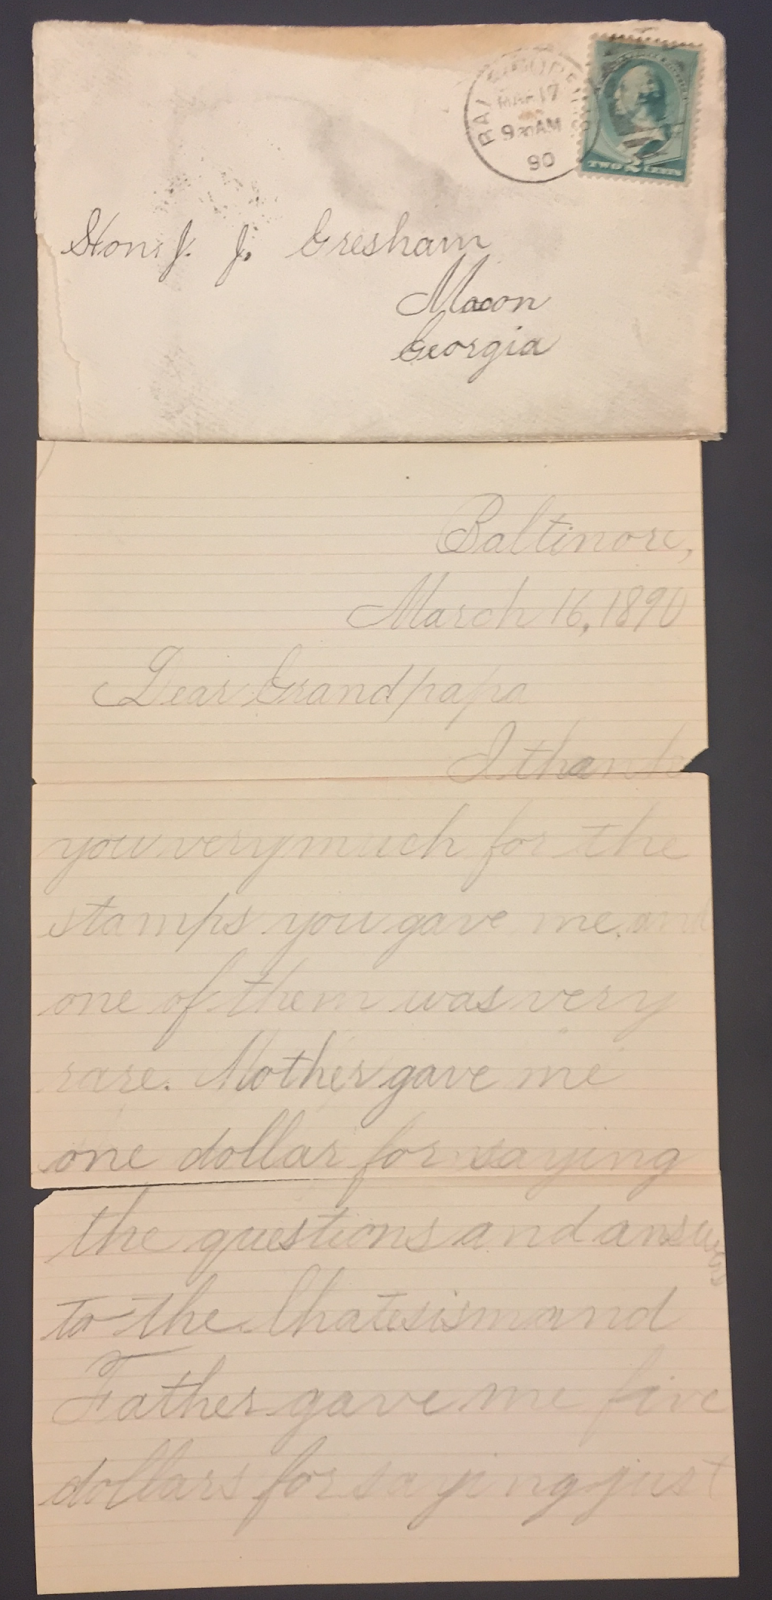 BALTIMORE
MAR 17
9 30 AM
90
TWO 2 CENTS
Hon. J. J. Gresham
Macon
Georgia
Baltimore,
March 16, 1890
Dear Grandpapa
I thank
you very much for the
stamps you gave me and
one of them was very
rare. Mother gave me
one dollar for saying
the questions and answers
to the Chatesism and
Father gave me five
dollars for saying just